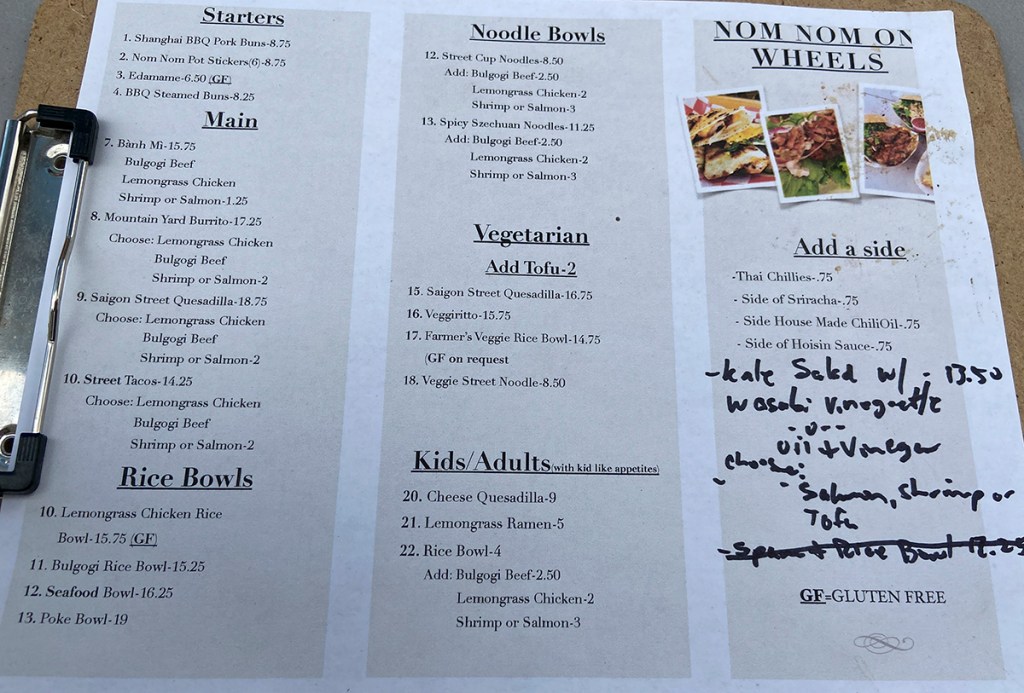 Starters
1. Shanghai BBQ Pork Buns-8.75
2. Nom Nom Pot Stickers(6)-8.75
3. Edamame-6.50 (GF)
4. BBQ Steamed Buns-8.25
Main
7. Bành Mì-15.75
Bulgogi Beef
Lemongrass Chicken
Shrimp or Salmon-1.25
8. Mountain Yard Burrito-17.25
Choose: Lemongrass Chicken
Bulgogi Beef
Shrimp or Salmon-2
9. Saigon Street Quesadilla-18.75
Choose: Lemongrass Chicken
Bulgogi Beef
Shrimp or Salmon-2
10. Street Tacos-14.25
Choose: Lemongrass Chicken
Bulgogi Beef
Shrimp or Salmon-2
Rice Bowls
10. Lemongrass Chicken Rice
Bowl-15.75 (GF)
11. Bulgogi Rice Bowl-15.25
12. Seafood Bowl-16.25
13. Poke Bowl-19
Noodle Bowls
12. Street Cup Noodles-8.50
Add: Bulgogi Beef-2.50
Lemongrass Chicken-2
Shrimp or Salmon-3
13. Spicy Szechuan Noodles-11.25
Add: Bulgogi Beef-2.50
Lemongrass Chicken-2
Shrimp or Salmon-3
Vegetarian
Add Tofu-2
15. Saigon Street Quesadilla-16.75
16. Veggiritto-15.75
17. Farmer's Veggie Rice Bowl-14.75
(GF on request
18. Veggie Street Noodle-8.50
Kids/Adults(with kid like appetites)
20. Cheese Quesadilla-9
21. Lemongrass Ramen-5
22. Rice Bowl-4
Add: Bulgogi Beef-2.50
Lemongrass Chicken-2
Shrimp or Salmon-3
NOM NOM ON
WHEELS
Add a side
-Thai Chillies-.75
- Side of Sriracha-.75
- Side House Made ChiliOil-.75
- Side of Hoisin Sauce-.75
-kale Salad w/ - 13.50
wasabi vinegrette
-- or --
oil + Vinegar
choose:
Salmon, shrimp or
Tofu
Rice Bowl 12.25
GF=GLUTEN FREE